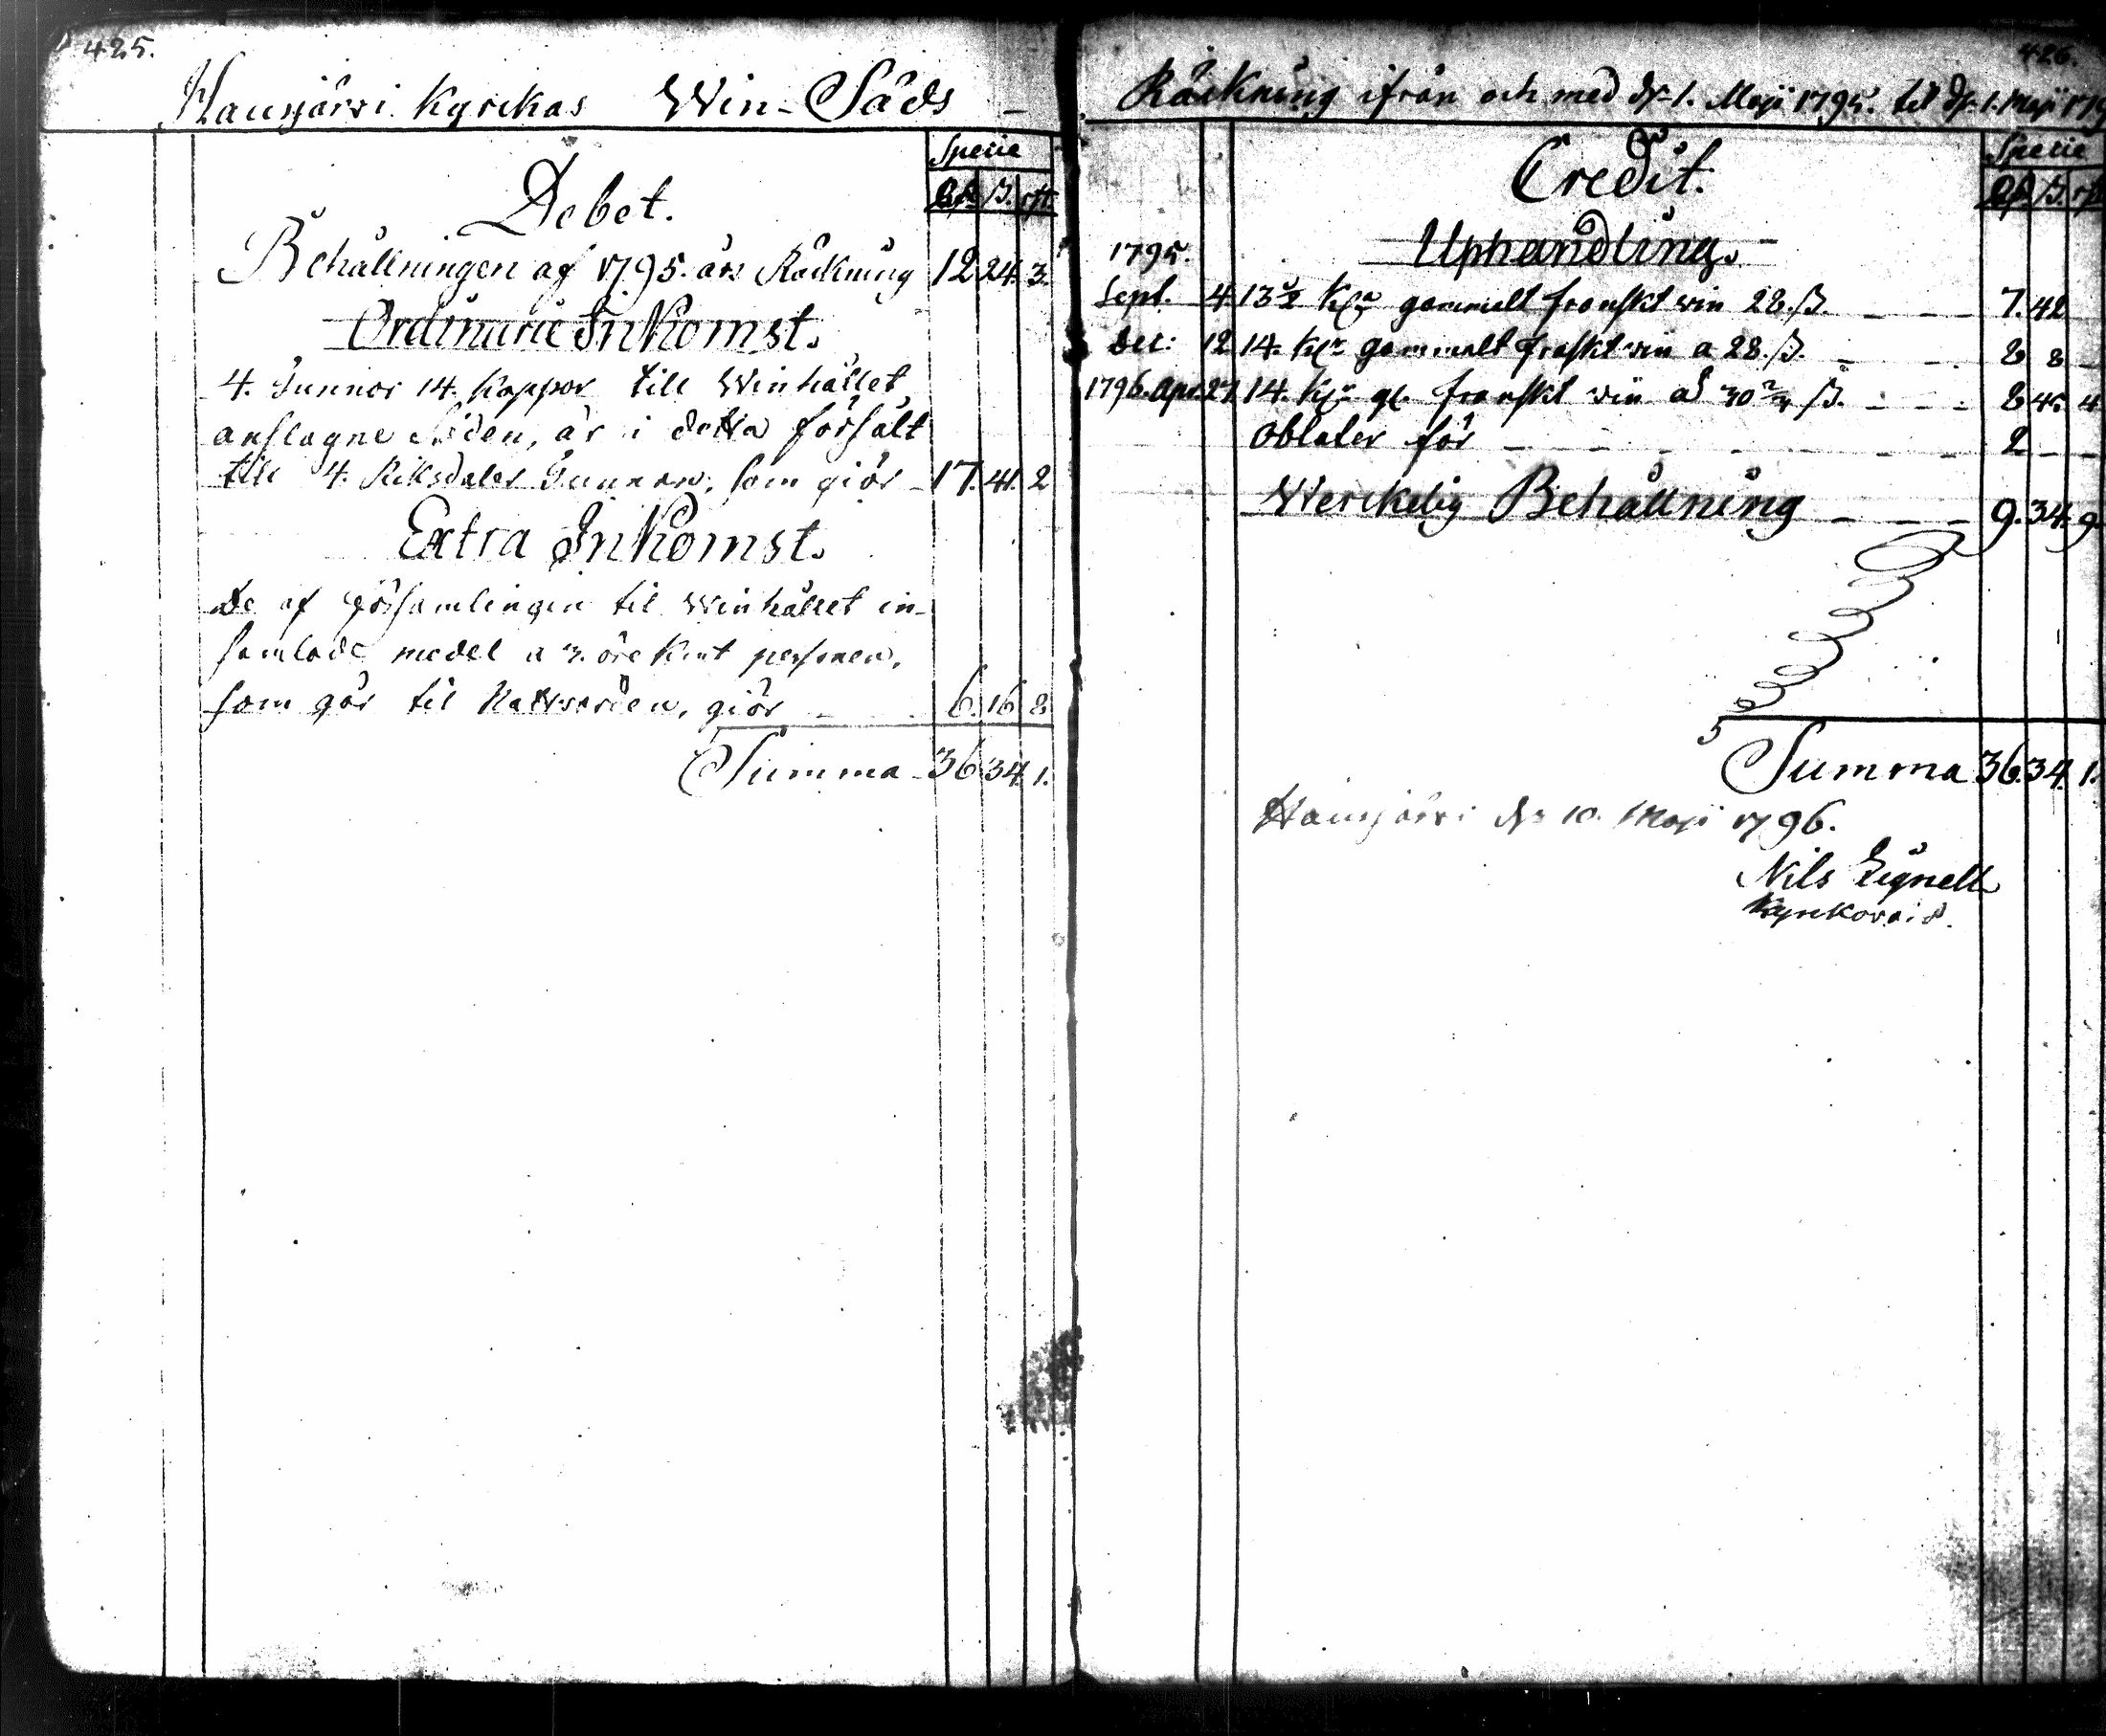 425.
Hausjärvi Kyrckas Win-Säds –
Debet.
Specie
Rdr ß. rst.
Behållningen af 1795. års Räckning 12 24. 3.
Ordinarie Inkomst.
4. Tunnor 14. Kappor till Winhållet
anslagne Säden, är i detta försålt
till 4. Riksdaler Tunnan, som giör 17. 41. 2
Extra Inkomst.
De af Församlingen til Winhållet in-
samlade medel a 3. öre Kmt personen,
som går til Nattvarden, giör – 6. 16 8
Summa 36 34. 1.
426.
Räckning ifrån och med d. 1. Maji 1795. til d. 1. Maji 179
Credit.
Specie
Rdr ß. rst
Uphandling.
1795.
Sept. 4 13 1/2 K:r gammalt franskt vin 28. ß. 7. 42
Dec: 12 14. K:r gammalt franskt vin a 28. ß. 8 8 –
1796. Apr. 27. 14. K:r gl. franskt vin a 30 2/3 ß. 8 45. 4
Oblater för 2 – –
Werckelig Behållning 9. 34. 9.
Summa 36. 34. 1.
Hausjärvi d. 10. Maji 1796.
Nils Lignell
Kyrckovärd.